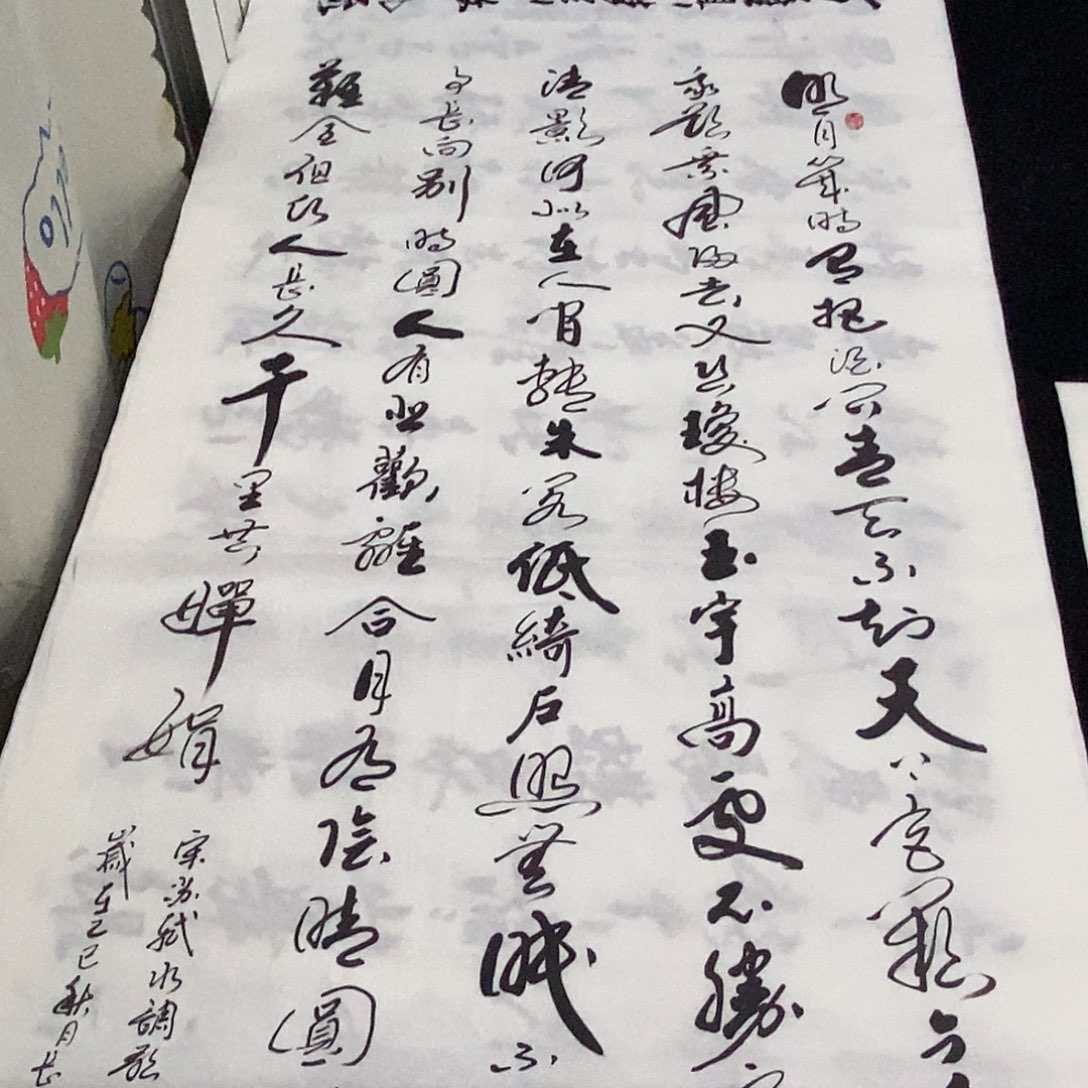 明月幾時有把酒问青天不知天上宫闕今
我欲乘風歸去又恐瓊樓玉宇高處不勝
清影何似在人間轉朱阁低綺户照無眠不
事長向别時圓人有悲歡離合月有陰晴圓
難全但願人長久千里共嬋娟
宋苏軾水調歌
歲在乙巳秋月長